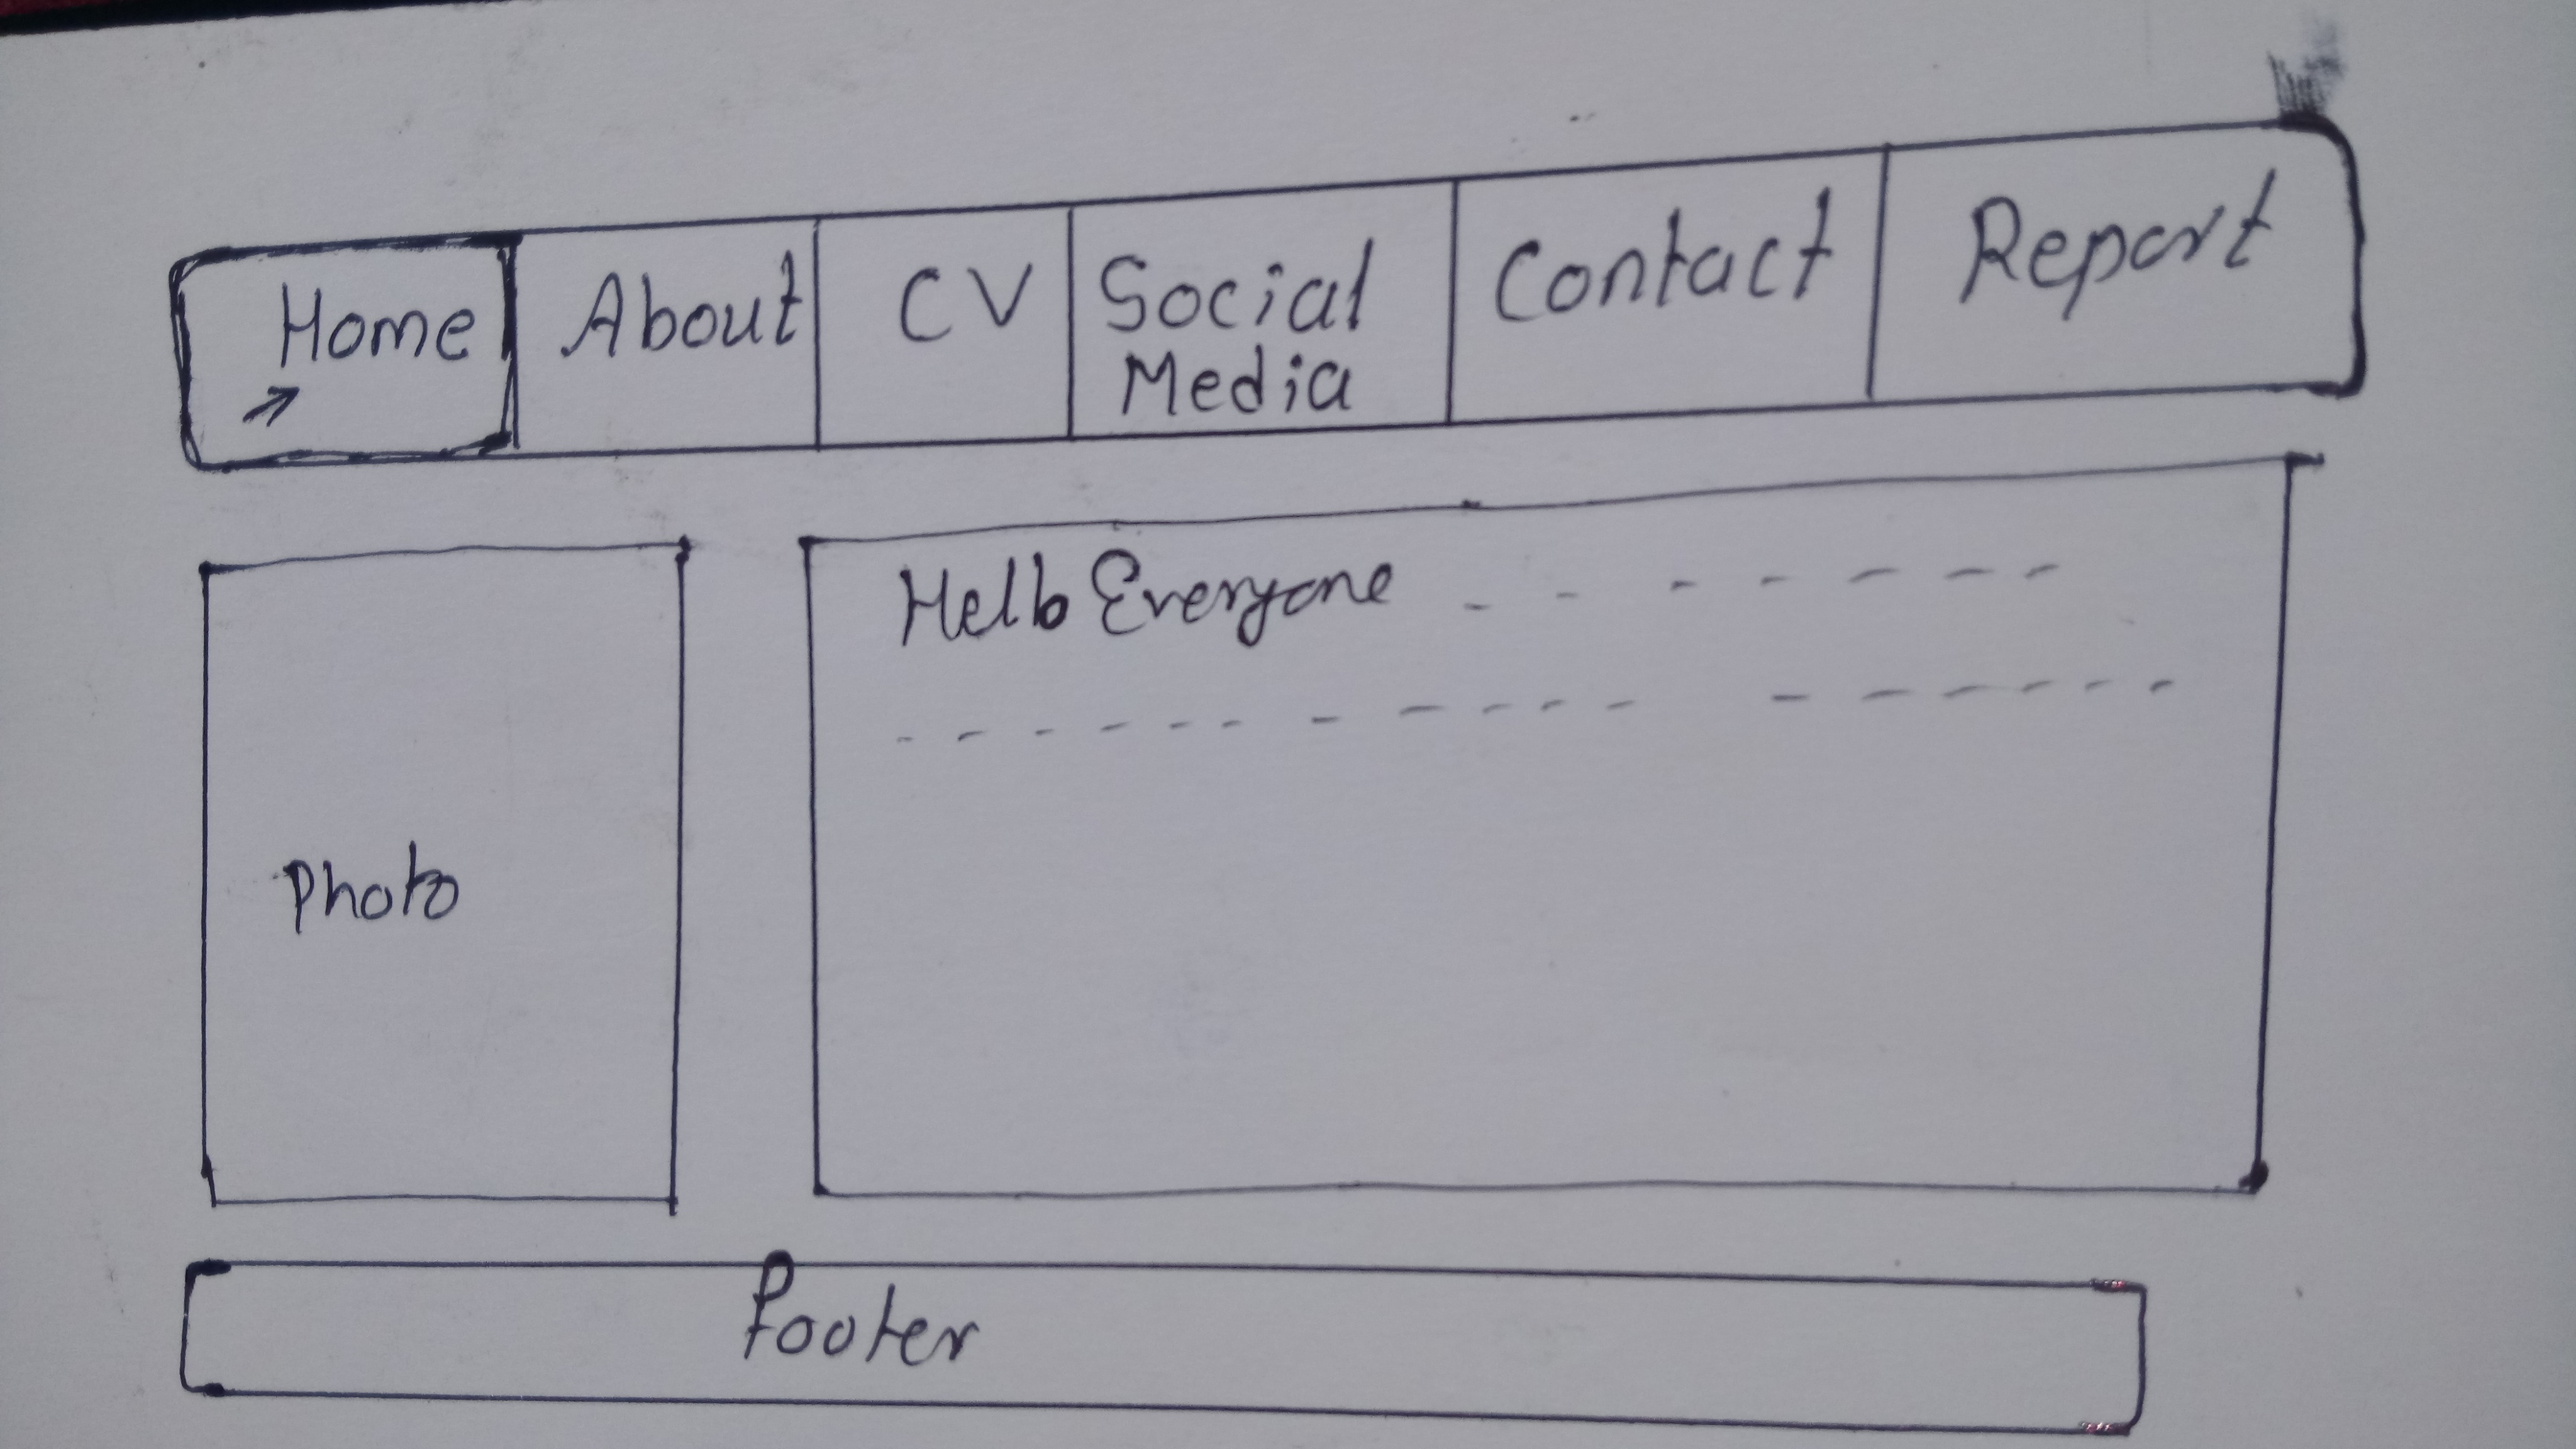 Home About CV Social Media Contact Report
Hello Everyone
Photo
Footer